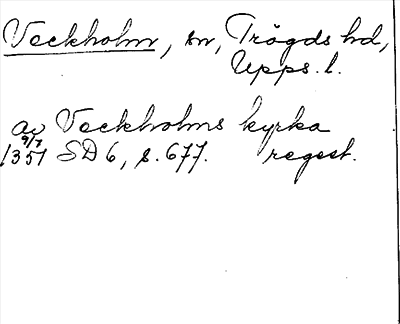 Veckholm, sn, Trögds hd,
Upps. l.
av Veckholms kyrka
9/7
1351 SD 6, s. 677. regest.